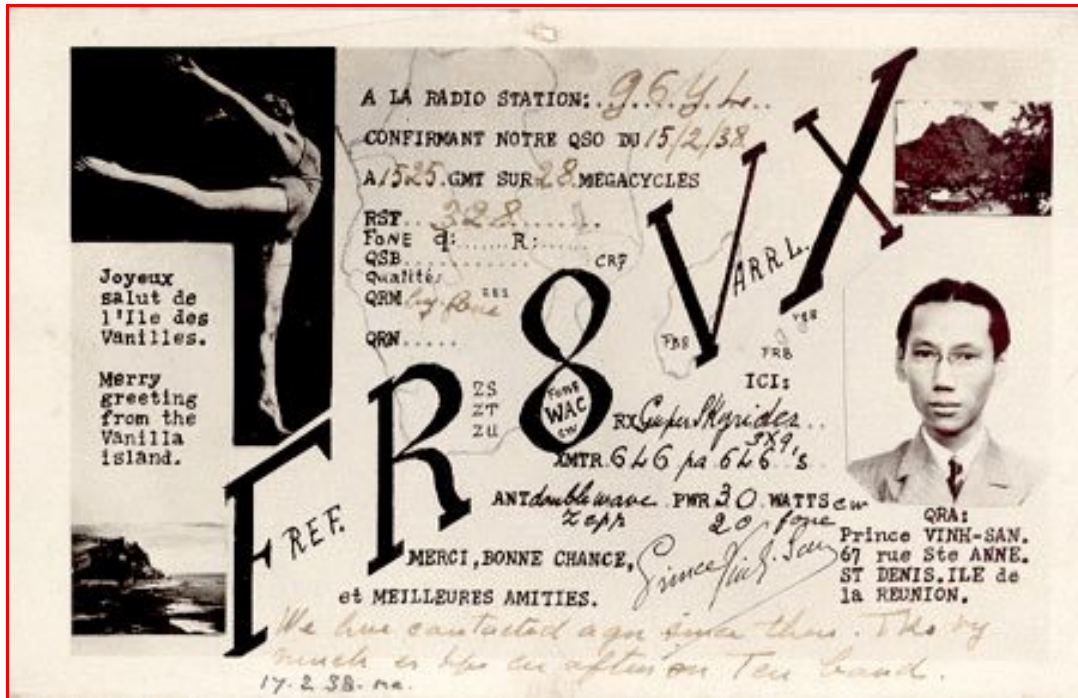 A LA RADIO STATION: g6YL
CONFIRMANT NOTRE QSO DU 15/2/38
A 1525 GMT SUR 28 MEGACYCLES
RST... 328.......
FONE q:...... R:....
QSB............
Qualités
QRM by fone
QRN.....
CR7
Joyeux
salut de
l'Ile des
Vanilles.
Merry
greeting
from the
Vanilla
island.
FR8VX
REF.
ARRL.
FONE
WAC
CW
ZS
ZT
ZU
FB8
FR8
VQ8
ICI:
RX Super Skyrider..
XMTR. 6L6 pa 6L6's
3X9,
ANT double wave . PWR 30. WATTS cw
Zepp 20, fone
MERCI, BONNE CHANCE,
et MEILLEURES AMITIES.
Prince Vinh. San
QRA:
Prince VINH-SAN.
67 rue Ste ANNE.
ST DENIS.ILE de
la REUNION.
We have contacted agn since then. Tks vy
much es hpe cu aften on Ten band.
17.2 38.